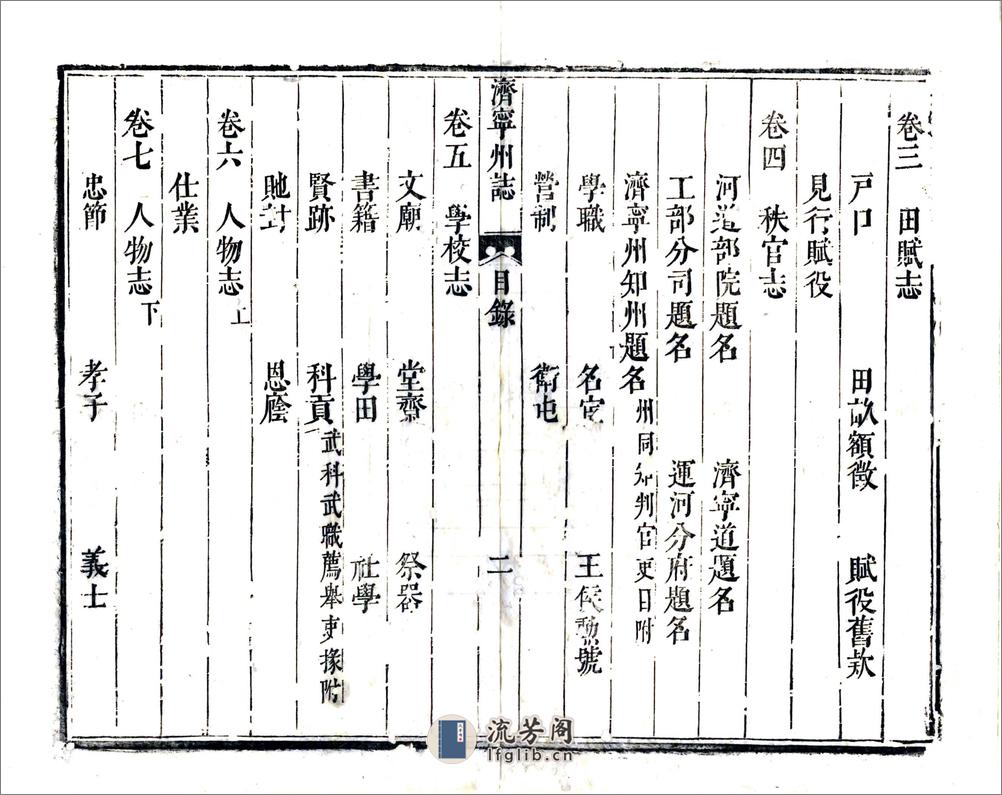 卷三　田賦志
戸口　田畝額徵　賦役舊欵
見行賦役
卷四　秩官志
河道部院題名　濟寧道題名
工部分司題名　運河分府題名
濟寧州知州題名 州同知判官吏目附
學職　名宦　王侯勳號
營制　衛屯
濟寧州誌　目錄　二
卷五　學校志
文廟　堂齋　祭器
書籍　學田　社學
賢跡　科貢 武科武職薦舉吏掾附
貤封　恩廕
卷六　人物志 上
仕業
卷七　人物志 下
忠節　孝子　義士
流芳阁
lfglib.cn